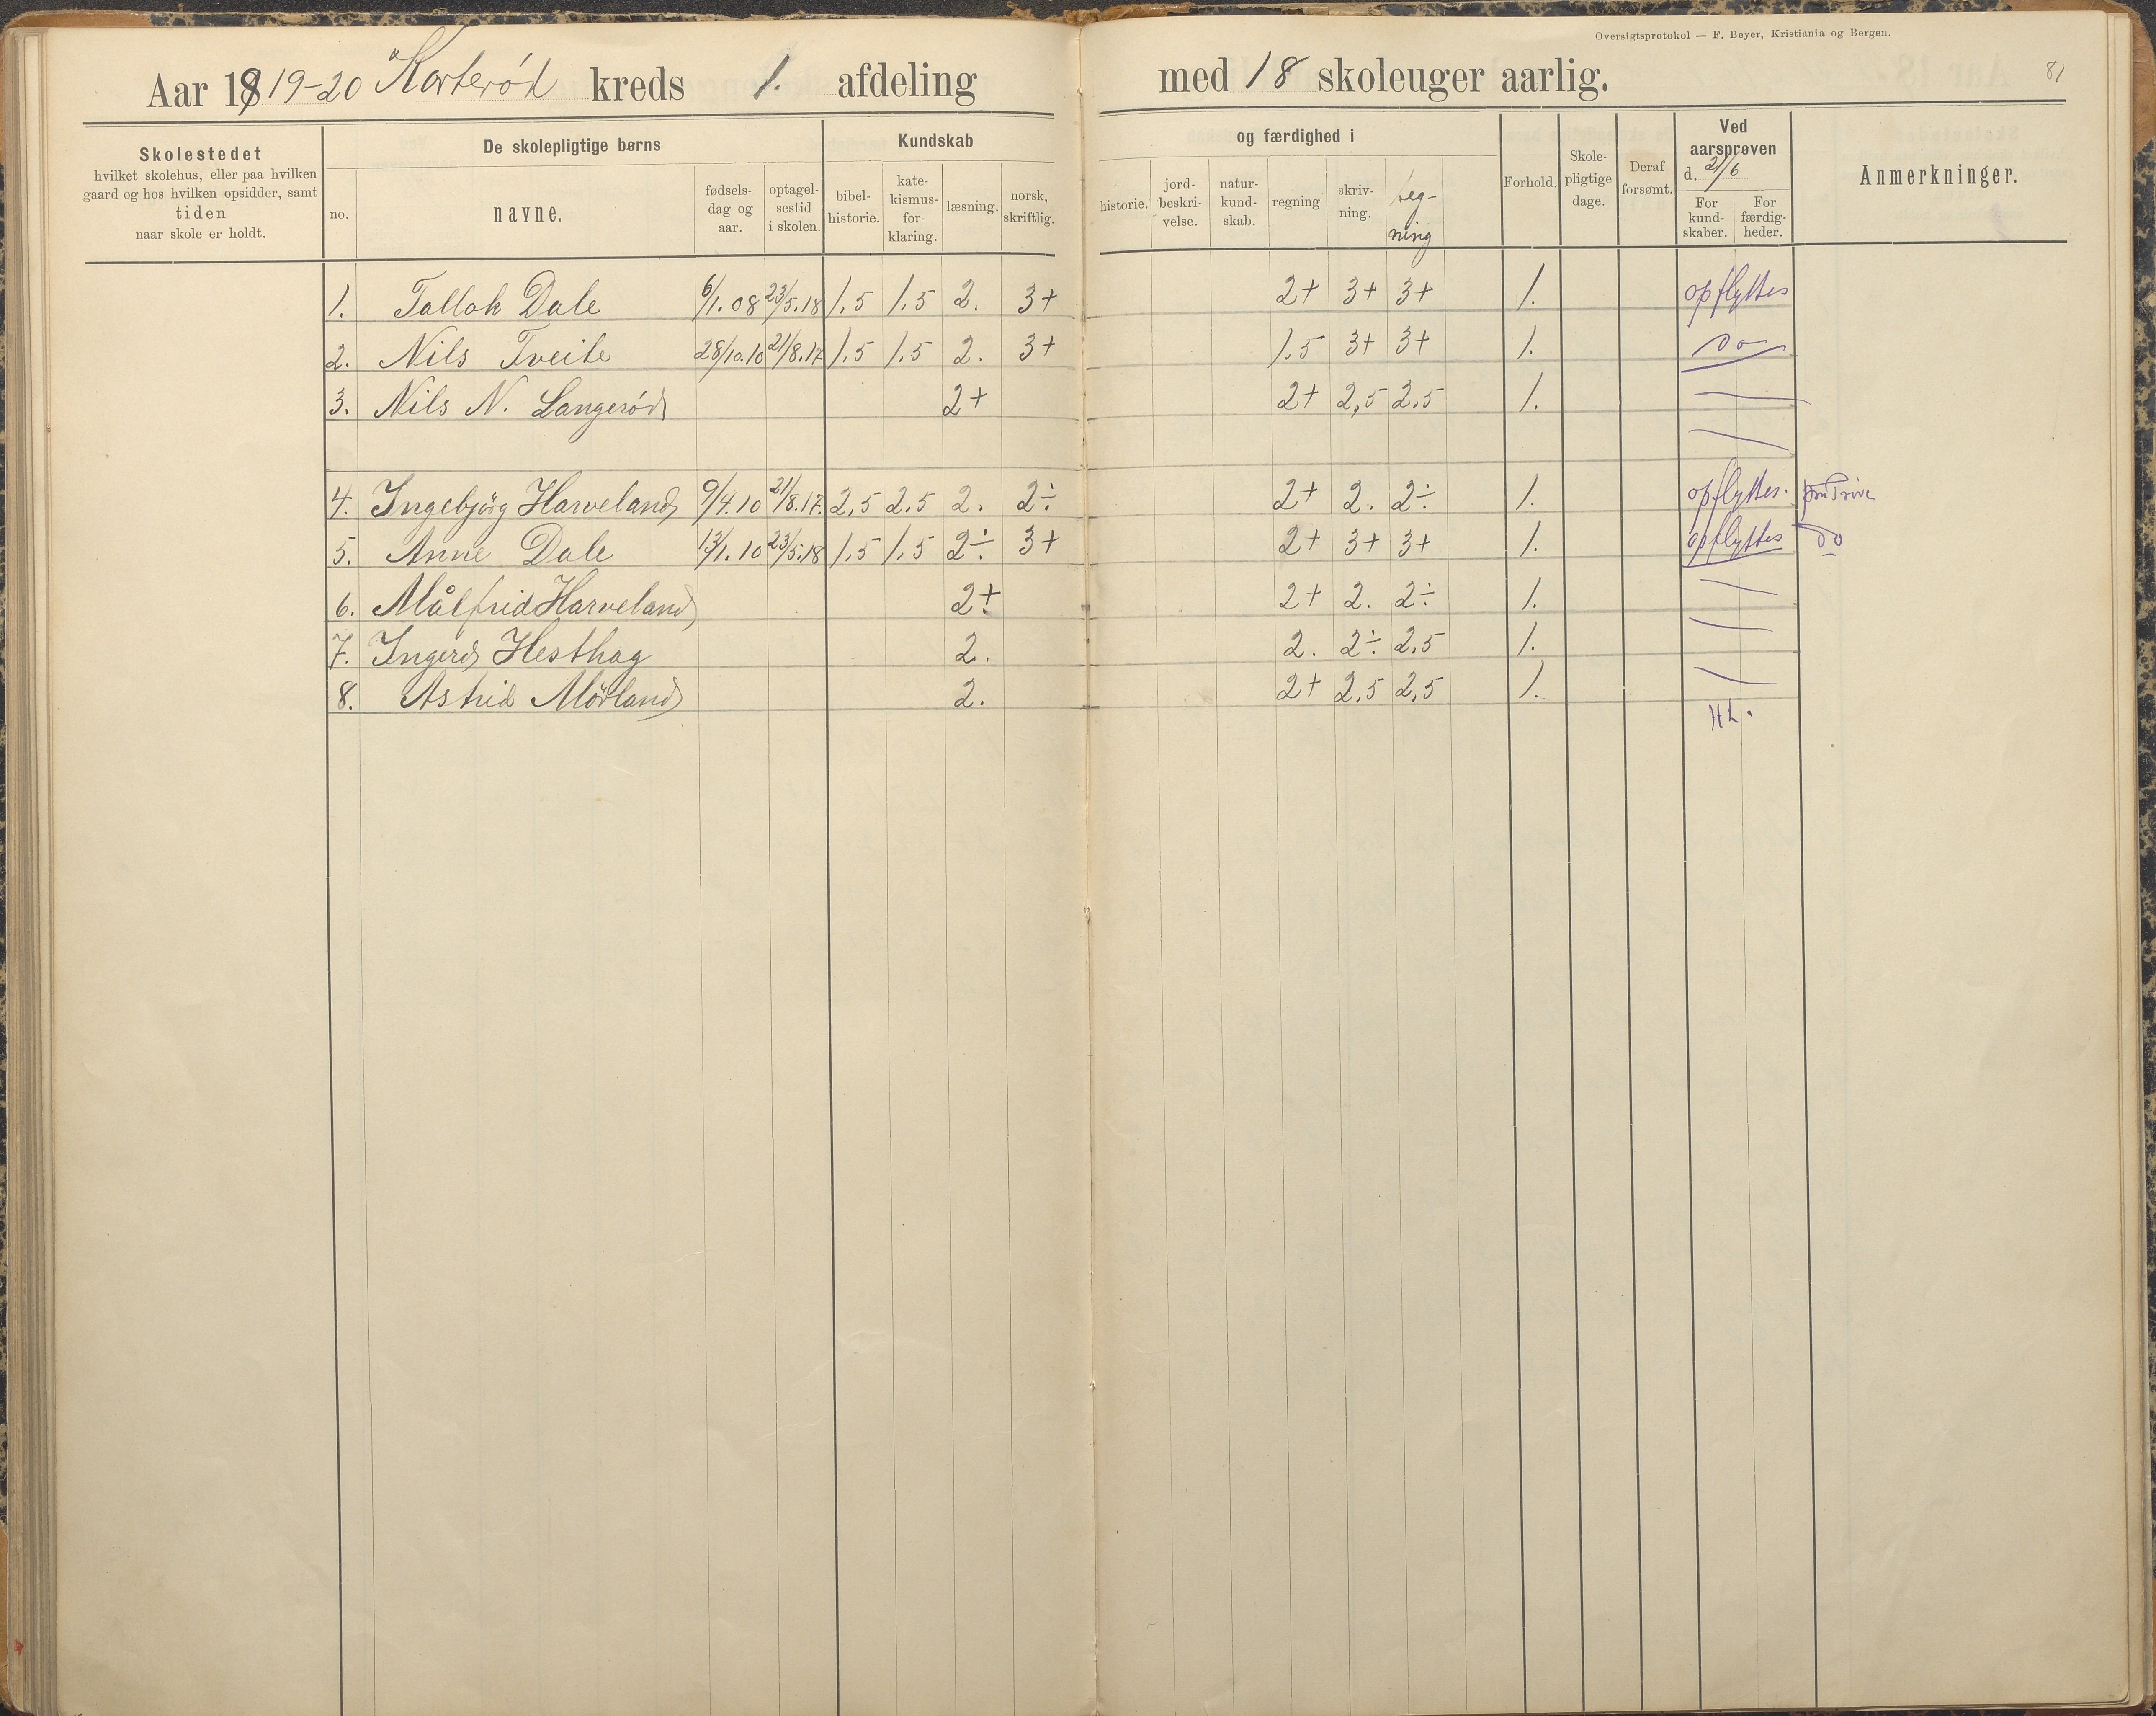 Oversigtsprotokol — F. Beyer, Kristiania og Bergen.
81
Aar 1919-20 Korterød kreds 1. afdeling med 18 skoleuger aarlig.
Skolestedet
hvilket skolehus, eller paa hvilken
gaard og hos hvilken opsidder, samt
tiden
naar skole er holdt.
De skolepligtige børns
no.
navne.
fødsels-
dag og
aar.
optagel-
sestid
i skolen.
Kundskab
bibel-
historie.
kate-
kismus-
for-
klaring.
læsning.
norsk,
skriftlig.
og færdighed i
historie.
jord-
beskri-
velse.
natur-
kund-
skab.
regning
skriv-
ning.
teg-
ning
Forhold.
Skole-
pligtige
dage.
Deraf
forsømt.
Ved
aarsprøven
d. 21/6
For
kund-
skaber.
For
færdig-
heder.
Anmerkninger.
1. Tallak Dale 6/1.08 23/5.18 1,5 1,5 2. 3+ 2+ 3+ 3+ 1. opflyttes
2. Nils Tveite 28/10.10 21/8.17 1,5 1,5 2. 3+ 1,5 3+ 3+ 1. do
3. Nils N. Langerød 2+ 2+ 2,5 2,5 1. —
—
4. Ingebjørg Harveland 9/4.10 21/8.17. 2,5 2,5 2. 2÷ 2+ 2. 2÷ 1. opflyttes.
5. Anne Dale 13/1.10 23/5.18 1,5 1,5 2÷ 3+ 2+ 3+ 3+ 1. opflyttes do
6. Målfrid Harveland 2+ 2+ 2. 2÷ 1. —
7. Ingerd Hesthag 2. 2. 2÷ 2,5 1. —
8. Astrid Mörland 2. 2+ 2,5 2,5 1. —
HL.